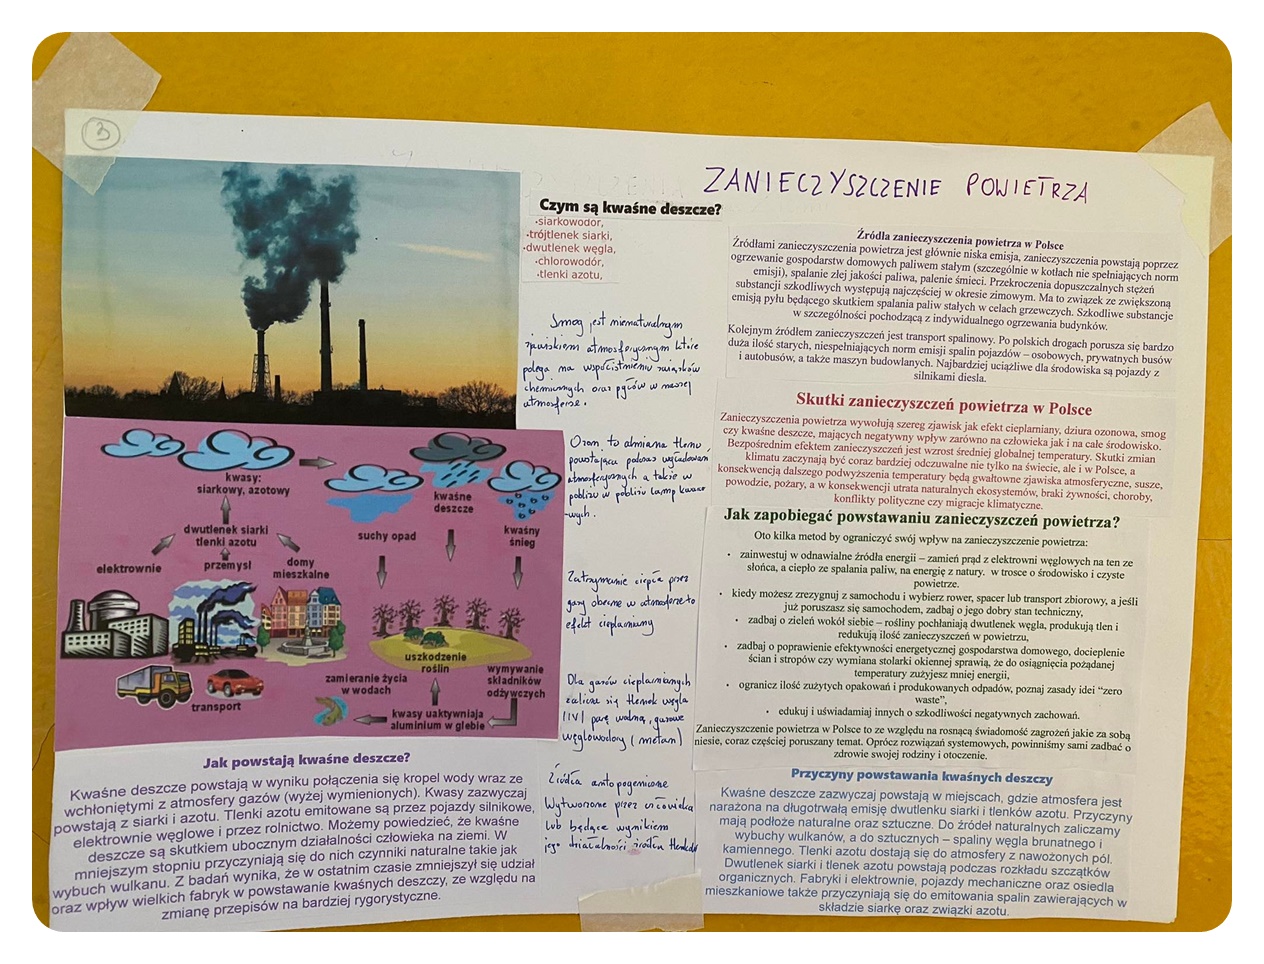 3
ZANIECZYSZCZENIE POWIETRZA
Czym są kwaśne deszcze?
•siarkowodór,
•trójtlenek siarki,
•dwutlenek węgla,
•chlorowodór,
•tlenki azotu,
Smog jest nienaturalnym
zjawiskiem atmosferycznym które
polega na współistnieniu związków
chemicznych oraz pyłów w naszej
atmosferze.
Ozon to odmiana tlenu,
powstająca podczas wyładowań
atmosferycznych a także w
pobliżu w pobliżu lamp kwarco
-wych.
Zatrzymanie ciepła przez
gazy obecne w atmosferze to
efekt cieplarniany
Dla gazów cieplarnianych
zalicza się tlenek węgla
(IV) parę wodną, gazowe
węglowodory (metan)
Źródła antropogeniczne
Wytworzone przez człowieka
lub będące wynikiem
jego działalności źródła tlenków
kwasy:
siarkowy, azotowy
dwutlenek siarki
tlenki azotu
elektrownie
przemysł
domy
mieszkalne
transport
suchy opad
kwaśne
deszcze
kwaśny
śnieg
uszkodzenie
roślin
zamieranie życia
w wodach
wymywanie
składników
odżywczych
kwasy uaktywniaja
aluminium w glebie
Jak powstają kwaśne deszcze?
Kwaśne deszcze powstają w wyniku połączenia się kropel wody wraz ze
wchłoniętymi z atmosfery gazów (wyżej wymienionych). Kwasy zazwyczaj
powstają z siarki i azotu. Tlenki azotu emitowane są przez pojazdy silnikowe,
elektrownie węglowe i przez rolnictwo. Możemy powiedzieć, że kwaśne
deszcze są skutkiem ubocznym działalności człowieka na ziemi. W
mniejszym stopniu przyczyniają się do nich czynniki naturalne takie jak
wybuch wulkanu. Z badań wynika, że w ostatnim czasie zmniejszył się udział
oraz wpływ wielkich fabryk w powstawanie kwaśnych deszczy, ze względu na
zmianę przepisów na bardziej rygorystyczne.
Źródła zanieczyszczenia powietrza w Polsce
Źródłami zanieczyszczenia powietrza jest głównie niska emisja, zanieczyszczenia powstają poprzez
ogrzewanie gospodarstw domowych paliwem stałym (szczególnie w kotłach nie spełniających norm
emisji), spalanie złej jakości paliwa, palenie śmieci. Przekroczenia dopuszczalnych stężeń
substancji szkodliwych występują najczęściej w okresie zimowym. Ma to związek ze zwiększoną
emisją pyłu będącego skutkiem spalania paliw stałych w celach grzewczych. Szkodliwe substancje
w szczególności pochodzącą z indywidualnego ogrzewania budynków.
Kolejnym źródłem zanieczyszczeń jest transport spalinowy. Po polskich drogach porusza się bardzo
duża ilość starych, niespełniających norm emisji spalin pojazdów – osobowych, prywatnych busów
i autobusów, a także maszyn budowlanych. Najbardziej uciążliwe dla środowiska są pojazdy z
silnikami diesla.
Skutki zanieczyszczeń powietrza w Polsce
Zanieczyszczenia powietrza wywołują szereg zjawisk jak efekt cieplarniany, dziura ozonowa, smog
czy kwaśne deszcze, mających negatywny wpływ zarówno na człowieka jak i na całe środowisko.
Bezpośrednim efektem zanieczyszczeń jest wzrost średniej globalnej temperatury. Skutki zmian
klimatu zaczynają być coraz bardziej odczuwalne nie tylko na świecie, ale i w Polsce, a
konsekwencją dalszego podwyższenia temperatury będą gwałtowne zjawiska atmosferyczne, susze,
powodzie, pożary, a w konsekwencji utrata naturalnych ekosystemów, braki żywności, choroby,
konflikty polityczne czy migracje klimatyczne.
Jak zapobiegać powstawaniu zanieczyszczeń powietrza?
Oto kilka metod by ograniczyć swój wpływ na zanieczyszczenie powietrza:
• zainwestuj w odnawialne źródła energii – zamień prąd z elektrowni węglowych na ten ze
słońca, a ciepło ze spalania paliw, na energię z natury. w trosce o środowisko i czyste
powietrze.
• kiedy możesz zrezygnuj z samochodu i wybierz rower, spacer lub transport zbiorowy, a jeśli
już poruszasz się samochodem, zadbaj o jego dobry stan techniczny,
• zadbaj o zieleń wokół siebie – rośliny pochłaniają dwutlenek węgla, produkują tlen i
redukują ilość zanieczyszczeń w powietrzu,
• zadbaj o poprawienie efektywności energetycznej gospodarstwa domowego, docieplenie
ścian i stropów czy wymiana stolarki okiennej sprawią, że do osiągnięcia pożądanej
temperatury zużyjesz mniej energii,
• ogranicz ilość zużytych opakowań i produkowanych odpadów, poznaj zasady idei “zero
waste”,
• edukuj i uświadamiaj innych o szkodliwości negatywnych zachowań.
Zanieczyszczenie powietrza w Polsce to ze względu na rosnącą świadomość zagrożeń jakie za sobą
niesie, coraz częściej poruszany temat. Oprócz rozwiązań systemowych, powinniśmy sami zadbać o
zdrowie swojej rodziny i otoczenie.
Przyczyny powstawania kwaśnych deszczy
Kwaśne deszcze zazwyczaj powstają w miejscach, gdzie atmosfera jest
narażona na długotrwałą emisję dwutlenku siarki i tlenków azotu. Przyczyny
mają podłoże naturalne oraz sztuczne. Do źródeł naturalnych zaliczamy
wybuchy wulkanów, a do sztucznych – spaliny węgla brunatnego i
kamiennego. Tlenki azotu dostają się do atmosfery z nawożonych pól.
Dwutlenek siarki i tlenek azotu powstają podczas rozkładu szczątków
organicznych. Fabryki i elektrownie, pojazdy mechaniczne oraz osiedla
mieszkaniowe także przyczyniają się do emitowania spalin zawierających w
składzie siarkę oraz związki azotu.